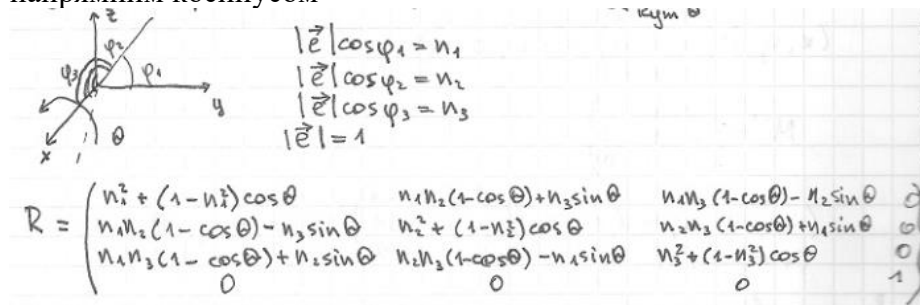 напрямним косинусом
кут θ
z
φ₂
φ₃
φ₁
y
x
θ
|e⃗|cosφ₁ = n₁
|e⃗|cosφ₂ = n₂
|e⃗|cosφ₃ = n₃
|e⃗| = 1
n₁² + (1-n₁²)cosθ n₁n₂(1-cosθ)+n₃sinθ n₁n₃(1-cosθ)-n₂sinθ 0
R = n₁n₂(1-cosθ)-n₃sinθ n₂²+(1-n₂²)cosθ n₂n₃(1-cosθ)+n₁sinθ 0
n₁n₃(1-cosθ)+n₂sinθ n₂n₃(1-cosθ)-n₁sinθ n₃²+(1-n₃²)cosθ 0
0 0 0 1